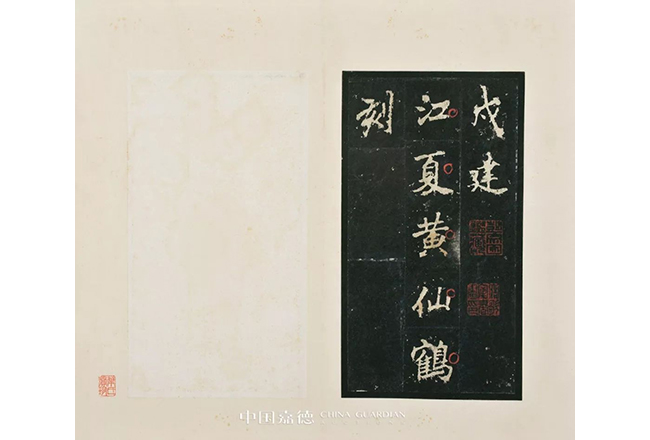 戍建
江夏黄仙鶴
刻
中国嘉德 CHINA GUARDIAN